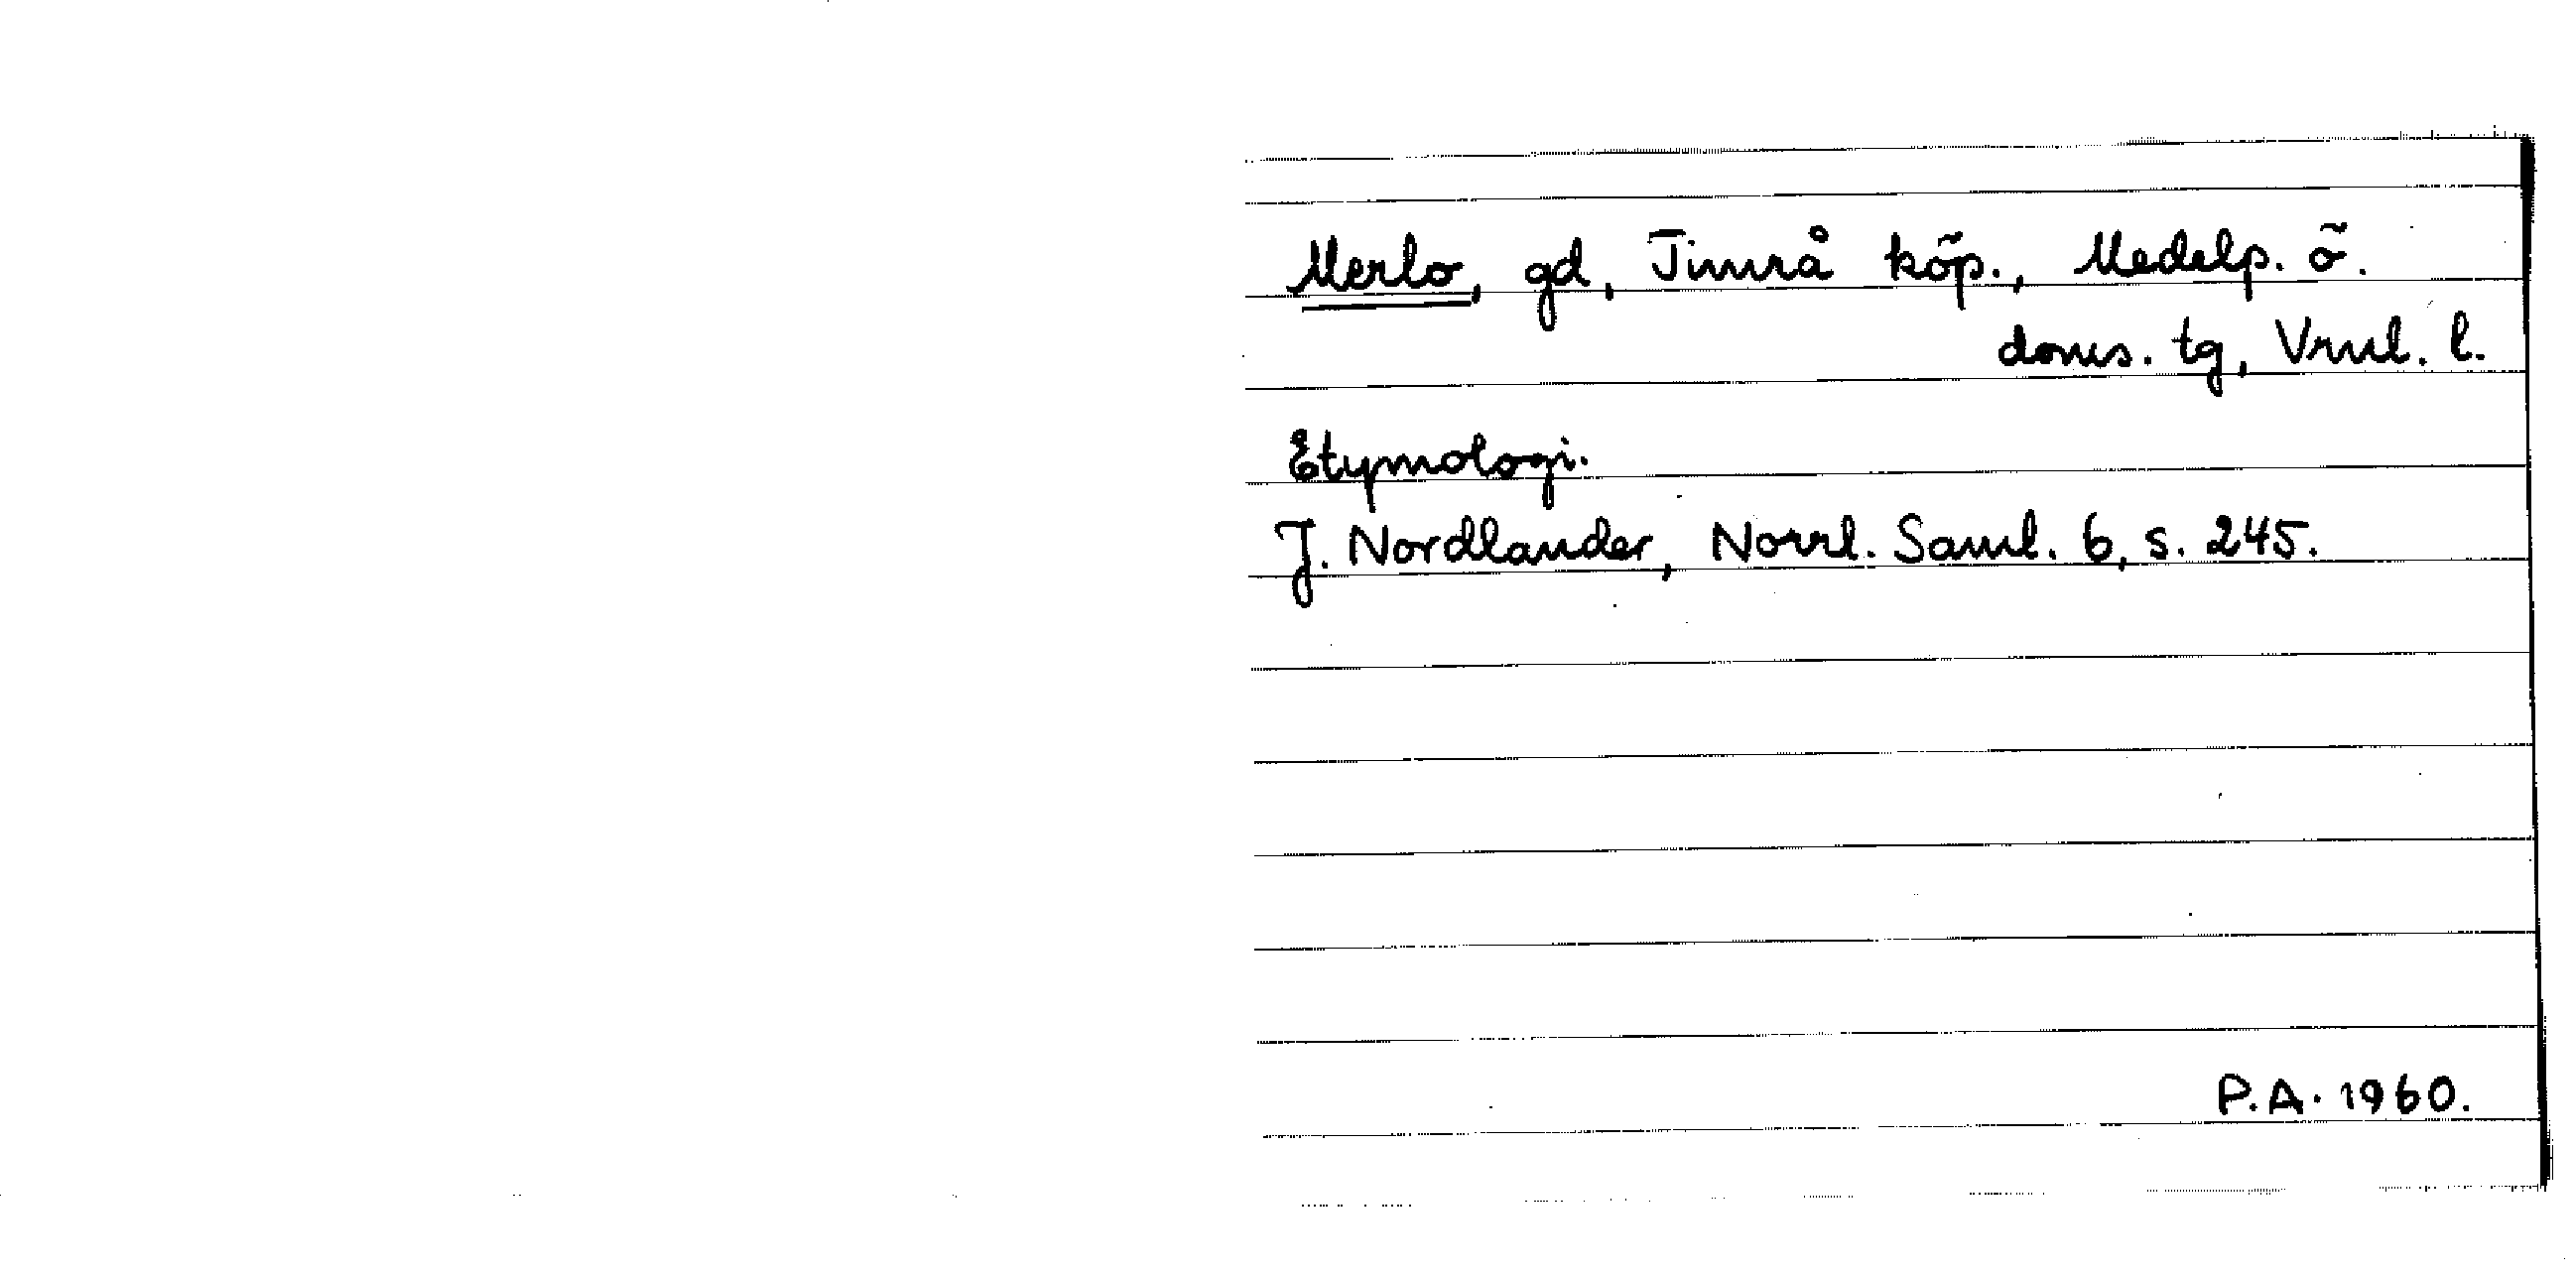 Merlo, gd, Timrå köp., Medelp. ö.
doms. tg, Vrnl. l.
Etymologi.
J. Nordlander, Norrl. Saml. 6, s. 245.
P.A. 1960.